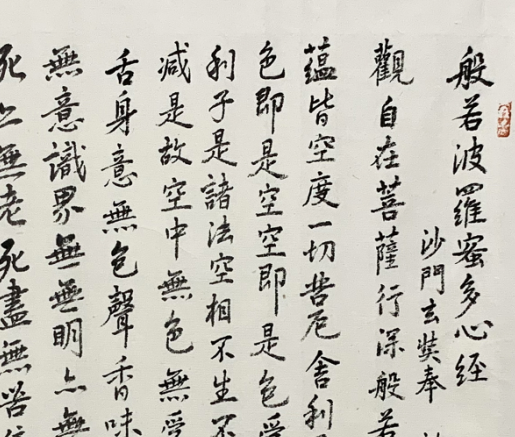 般若波羅蜜多心経
沙門玄奘奉
觀自在菩薩行深般若
蘊皆空度一切苦厄舍利
色即是空空即是色受
利子是諸法空相不生不
減是故空中無色無受
舌身意無色聲香味
無意識界無無明亦無
死亦無老死盡無苦